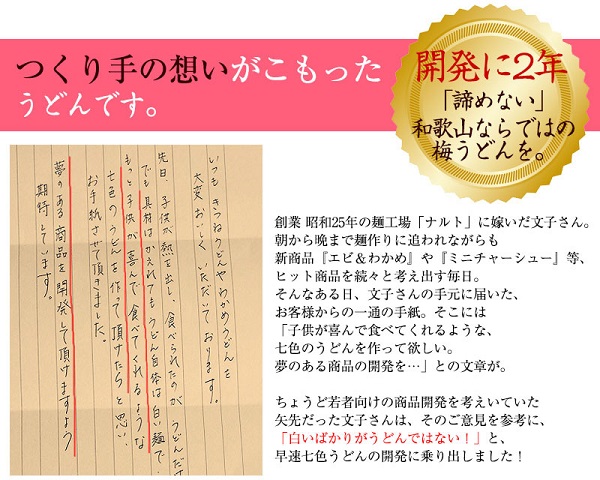 つくり手の想いがこもった
うどんです。
開発に2年
「諦めない」
和歌山ならではの
梅うどんを。
いつもきつねうどんやわかめうどんを
大変おいしくいただいております。
先日、子供が熱を出し、食べられたのがうどんだけ
でも具材はかえれてもうどん自体は白い麺で、
もっと子供が喜んで食べてくれるような
七色のうどんを作って頂けたらと思い、
お手紙させて頂きました。
夢のある商品を開発して頂けますよう
期待しています。
創業 昭和25年の麺工場「ナルト」に嫁いだ文子さん。
朝から晩まで麺作りに追われながらも
新商品『エビ&わかめ』や『ミニチャーシュー』等、
ヒット商品を続々と考え出す毎日。
そんなある日、文子さんの手元に届いた、
お客様からの一通の手紙。そこには
「子供が喜んで食べてくれるような、
七色のうどんを作って欲しい。
夢のある商品の開発を…」との文章が。
ちょうど若者向けの商品開発を考えいていた
矢先だった文子さんは、そのご意見を参考に、
「白いばかりがうどんではない！」と、
早速七色うどんの開発に乗り出しました！